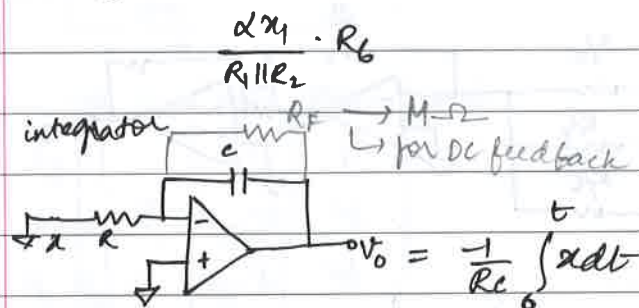 αx₁ / R₁||R₂ · R₆
integrator RF → M-Ω
↳ for DC feedback
c
x R - + V₀ = -1/Rc ∫₀ᵗ xdt